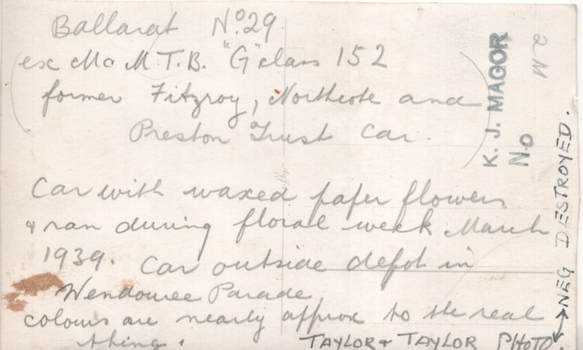 Ballarat No. 29.
(ex M & M.T.B. "G" class 152
former Fitzroy, Northcote and
Preston Trust Car.)
Car with waxed paper flowers
& ran during floral week March
1939. Car outside depot in
Wendouree Parade
colours are nearly approx to the real
thing.
TAYLOR & TAYLOR PHOTO.
K. J. MAGOR
No
NEG DESTROYED.